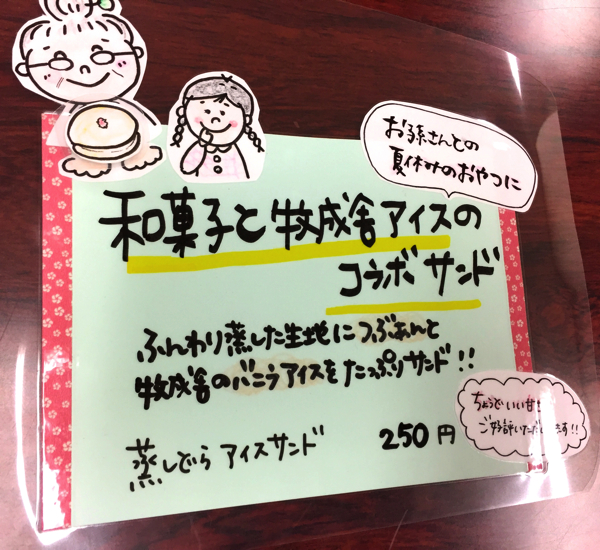 お孫さんとの
夏休みのおやつに
和菓子と牧成舎アイスの
コラボサンド
ふんわり蒸した生地につぶあんと
牧成舎のバニラアイスをたっぷりサンド!!
蒸しどら アイスサンド 250円
ちょうどいい甘
ご好評いただ ます!!